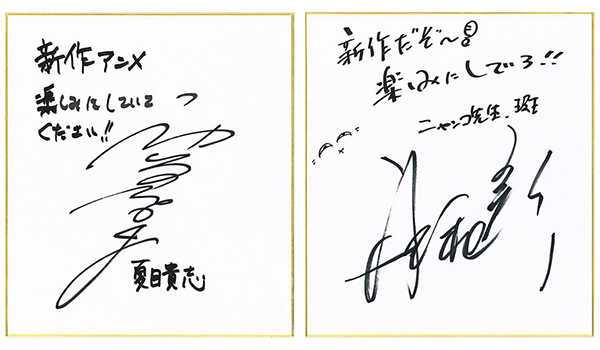 新作アニメ
楽しみにしていて
ください!!
夏目貴志
新作だぞ〜!
楽しみにしていろ!!
ニャンコ先生、斑